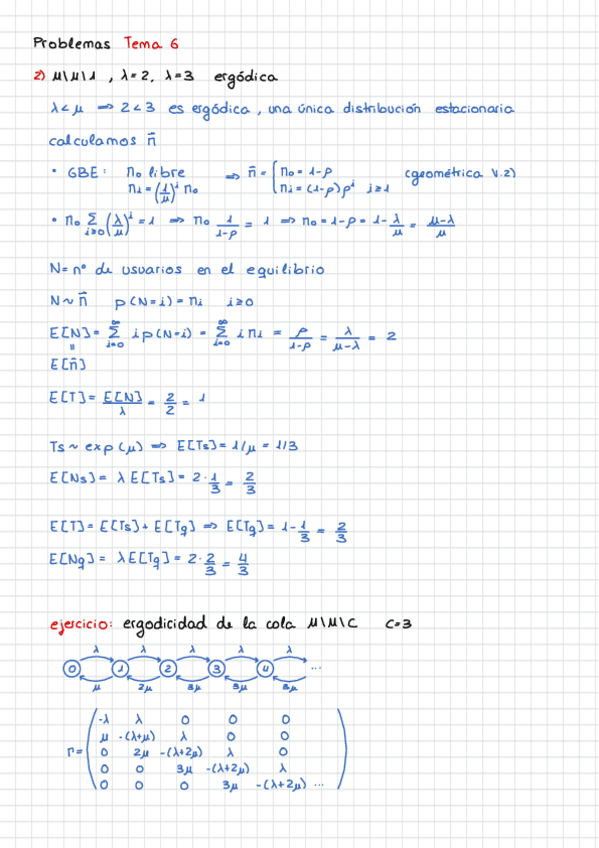 Problemas Tema 6
2) M\M\1 , λ=2, λ=3 ergódica
λ<μ ⇒ 2<3 es ergódica , una única distribución estacionaria
calculamos n̄
• GBE: n₀ libre ⇒ n̄ = { n₀ = 1-ρ (geométrica V.2)
nᵢ = (λ/μ)ⁱ n₀ nᵢ = (1-ρ)ρⁱ i≥1
• n₀ Σ_{i≥0} (λ/μ)ⁱ = 1 ⇒ n₀ 1/(1-ρ) = 1 ⇒ n₀ = 1-ρ = 1 - λ/μ = (μ-λ)/μ
N = nº de usuarios en el equilibrio
N ~ n̄ p(N=i) = nᵢ i≥0
E[N] = Σ_{i=0}^{∞} i p(N=i) = Σ_{i=0}^{∞} i nᵢ = ρ/(1-ρ) = λ/(μ-λ) = 2
=
E[n̄]
E[T] = E[N]/λ = 2/2 = 1
Ts ~ exp(μ) ⇒ E[Ts] = 1/μ = 1/3
E[Ns] = λ E[Ts] = 2·1/3 = 2/3
E[T] = E[Ts] + E[Tq] ⇒ E[Tq] = 1 - 1/3 = 2/3
E[Nq] = λ E[Tq] = 2·2/3 = 4/3
ejercicio: ergodicidad de la cola M\M\C C=3
λ λ λ λ λ
0 1 2 3 4 ...
μ 2μ 3μ 3μ 3μ
-λ λ 0 0 0
μ -(λ+μ) λ 0 0
Γ = 0 2μ -(λ+2μ) λ 0
0 0 3μ -(λ+2μ) λ
0 0 0 3μ -(λ+2μ) ...